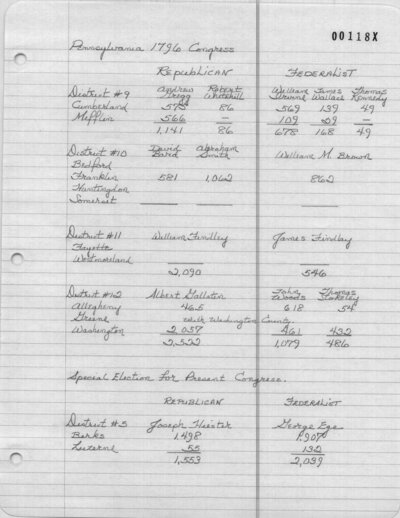 00118X
Pennsylvania 1796 Congress
REPUBLICAN FEDERALIST
District #9 Andrew Gregg Robert Whitehill William Irvine James Wallace Thomas Kennedy
Cumberland 575 86 569 139 49
Mifflin 566 — 109 29 —
1,141 86 678 168 49
District #10 David Bard Abraham Smith William M. Brown
Bedford
Franklin 581 1,062 862
Huntingdon
Somerset — — —
District #11 William Findley James Findlay
Fayette
Westmoreland
2,090 546
District #12 Albert Gallatin John Woods Thomas Stokeley
Allegheny 465 618 54
Greene with Washington County
Washington 2,057 461 432
2,522 1,079 486
Special Election for Present Congress.
REPUBLICAN FEDERALIST
District #5 Joseph Hiester George Ege
Berks 1,498 1,907
Luzerne 55 132
1,553 2,039